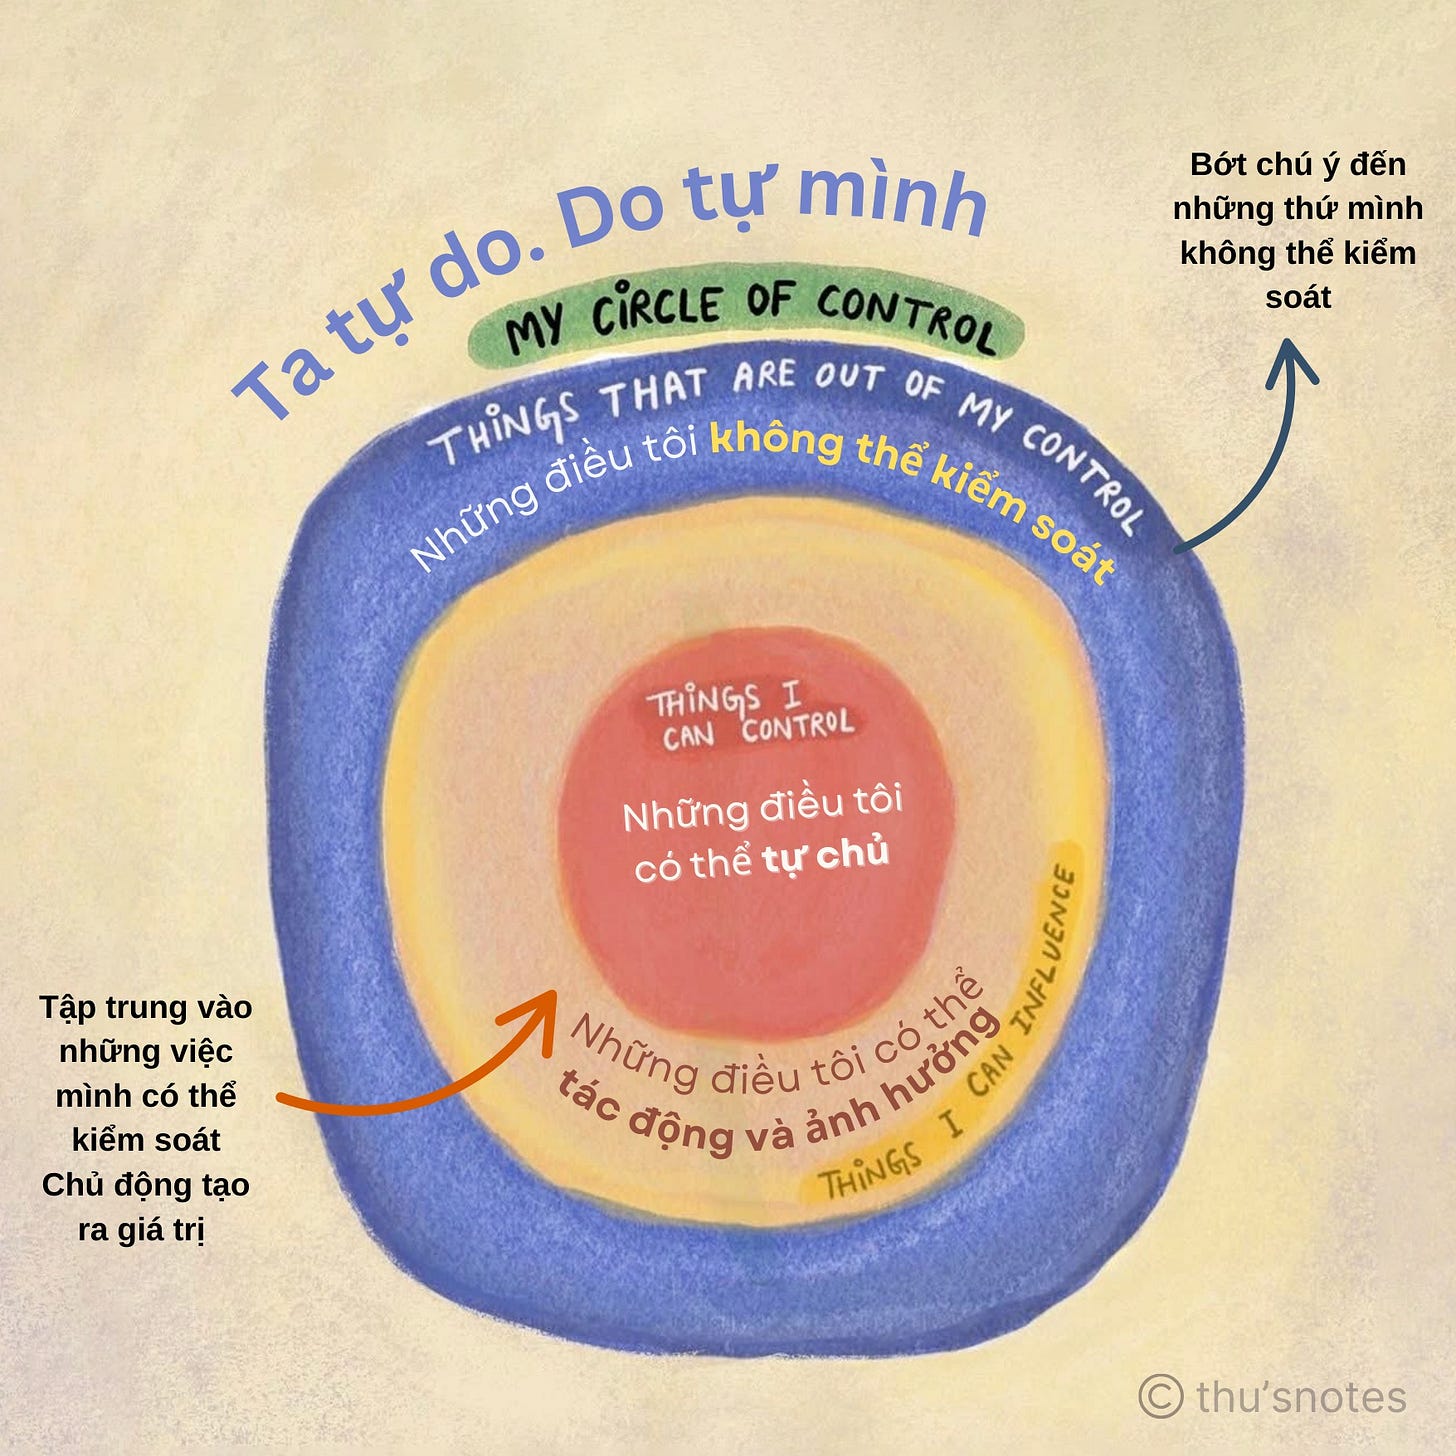 Ta tự do. Do tự mình
Bớt chú ý đến
những thứ mình
không thể kiểm
soát
MY CIRCLE OF CONTROL
THINGS THAT ARE OUT OF MY CONTROL
Những điều tôi không thể kiểm soát
THINGS I
CAN CONTROL
Những điều tôi
có thể tự chủ
Những điều tôi có thể
tác động và ảnh hưởng
THINGS I CAN INFLUENCE
Tập trung vào
những việc
mình có thể
kiểm soát
Chủ động tạo
ra giá trị
© thu'snotes